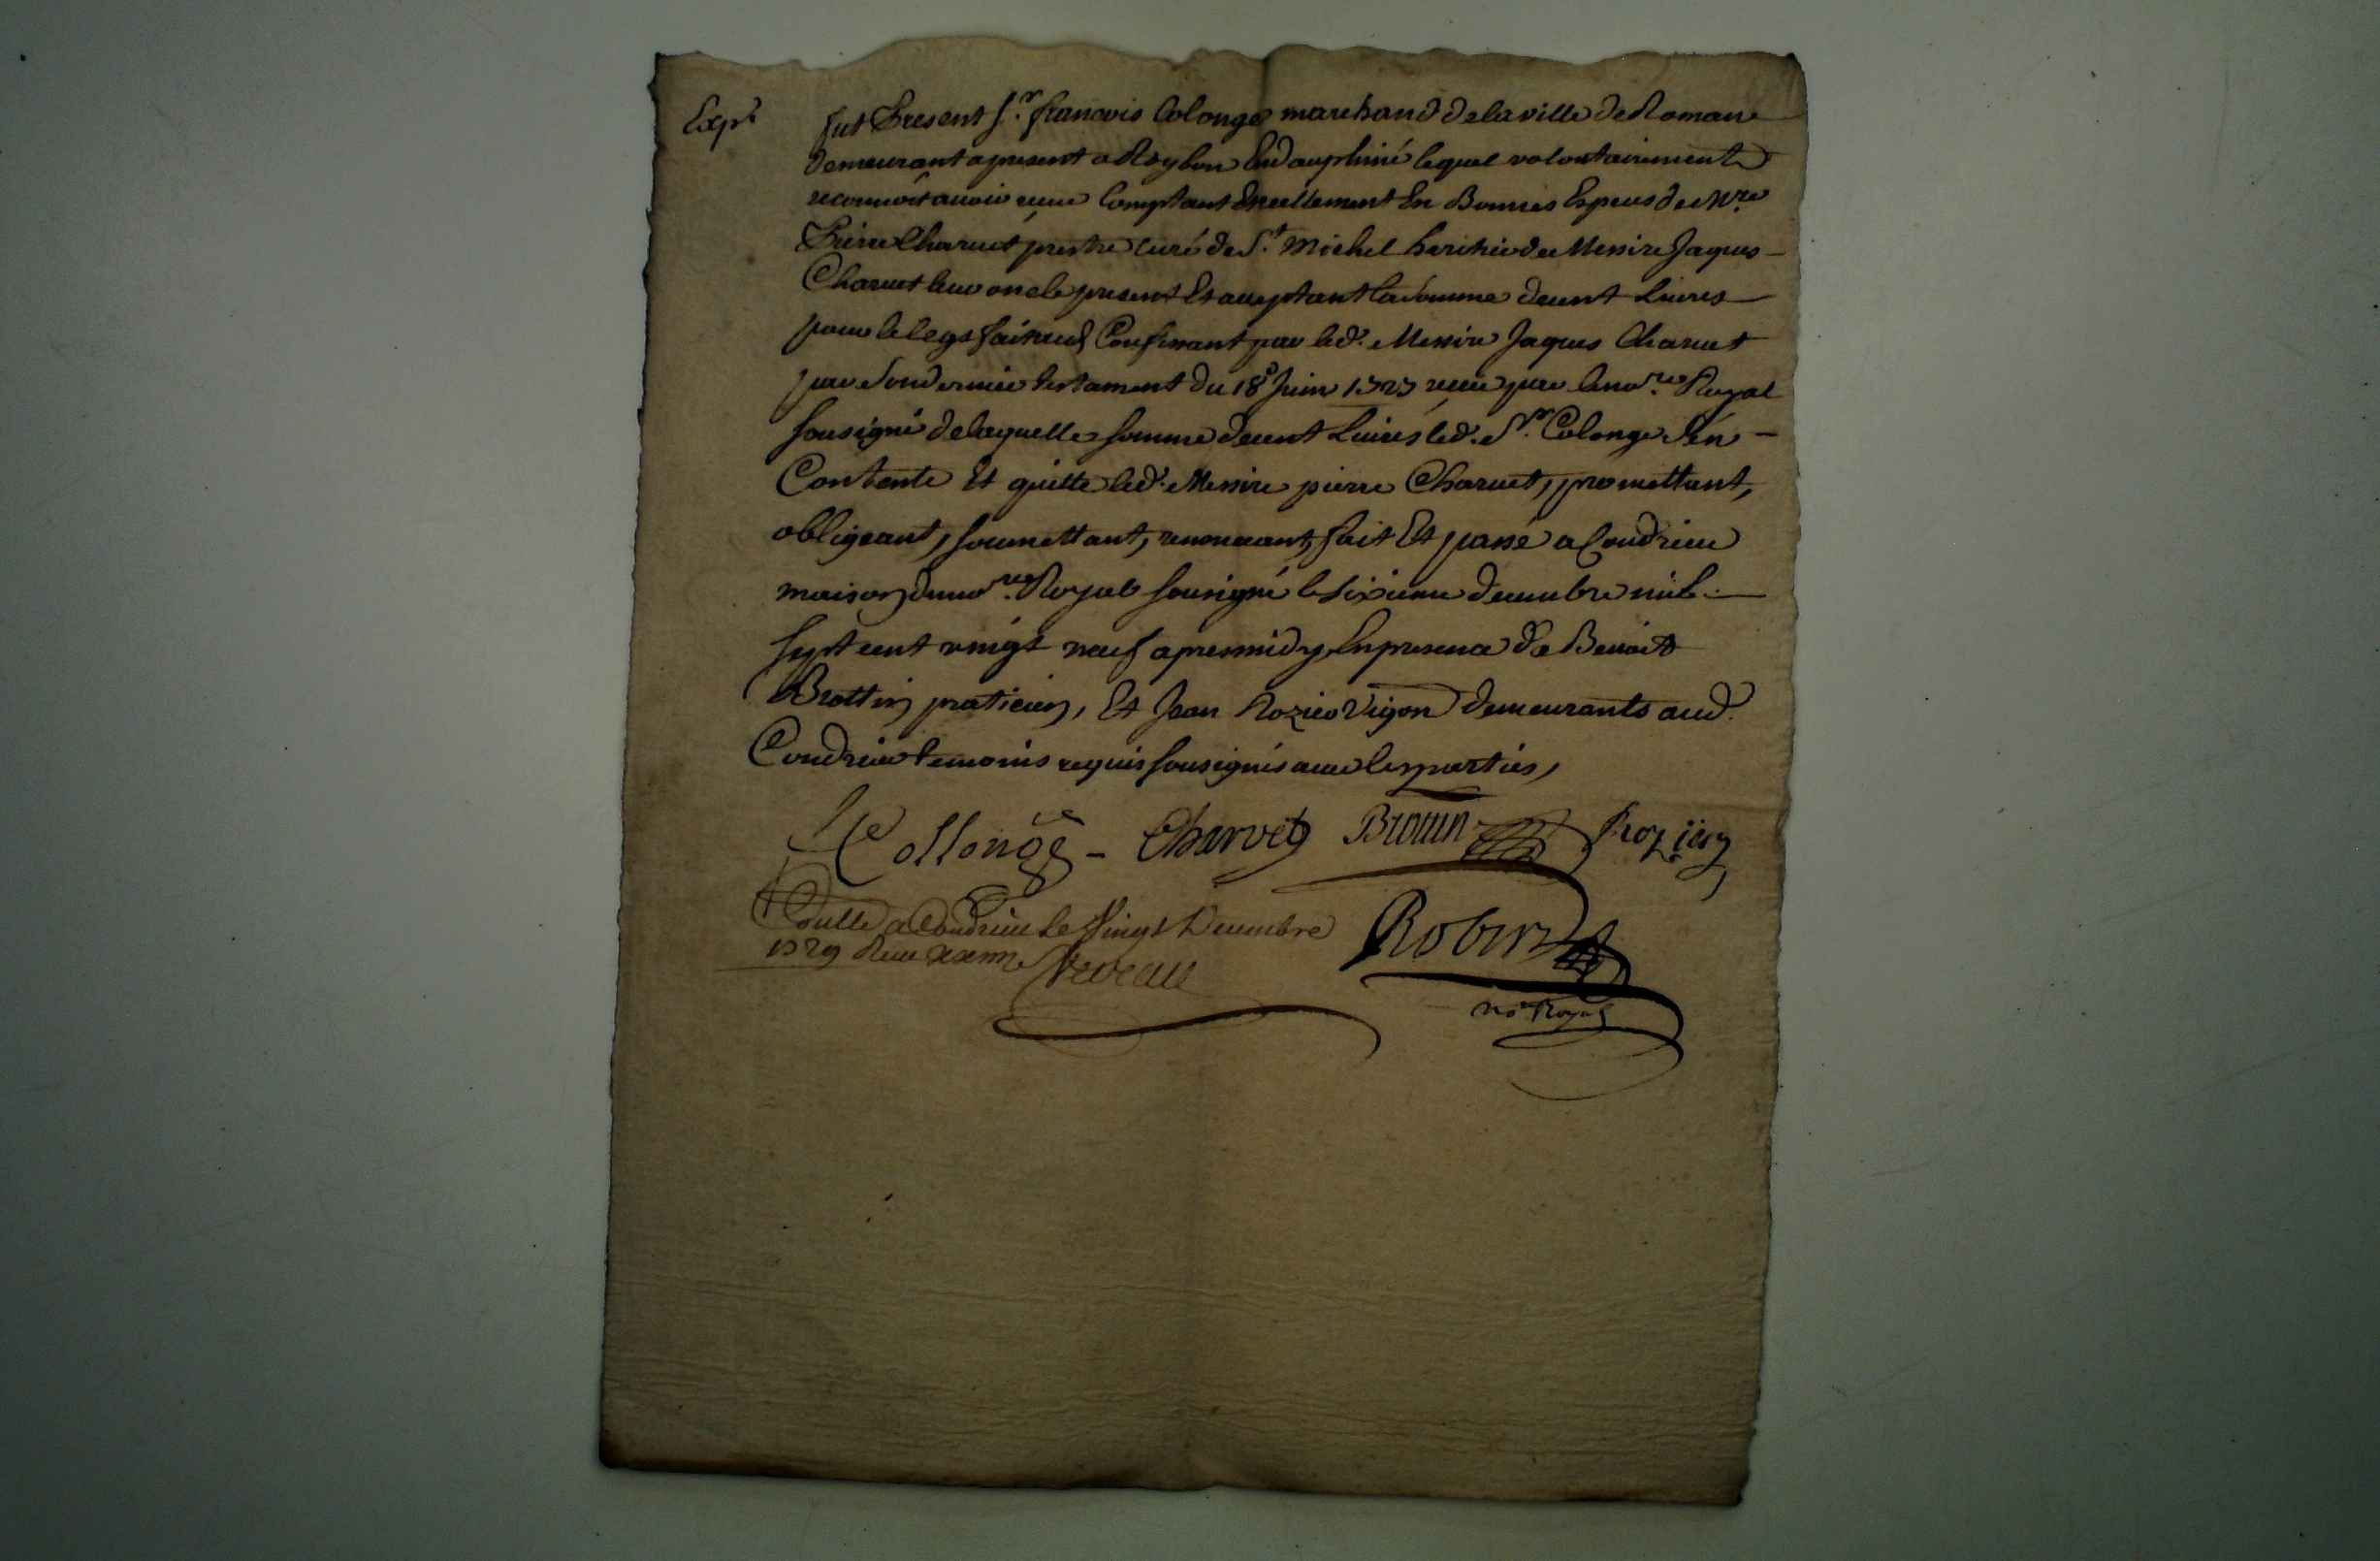 Expé
fut Present Sr. francois Colonge marchand de la ville de Romans
demeurant apresent a Roybon En dauphiné lequel volontairement
reconnoit auoir receu Comptant Et reellement En Bonnes Especes de Mre
Pierre Charuet prestre curé de St. Michel heritier de Messire Jaques
Charuet leur oncle present Et acceptant la somme de cent Liures
pour le legs fait aud Confessant par led. Messire Jaques Charuet
par son dernier testament du 18e Juin 1727 receu par le nore. Royal
sousigné de laquelle somme de cent Liures led. Sr. Colonge s'en
Contente Et quitte led. Messire pierre Charuet, promettant,
obligeant, soumettant, renoncant, fait Et passé a Condrieu
maison du nore. Royal sousigné le sixieme decembre mil
sept cent vingt neuf apres midy, En presence de Benoit
Brottin praticien, Et Jean Rozier Vigon demeurants aud.
Condrieu temoins requis sousignés auec les parties,
Collonge - Charvet Brottin Rozier
Conllé a Condrieu le Vingt Decembre
1729 Receu
Robin
no Royal